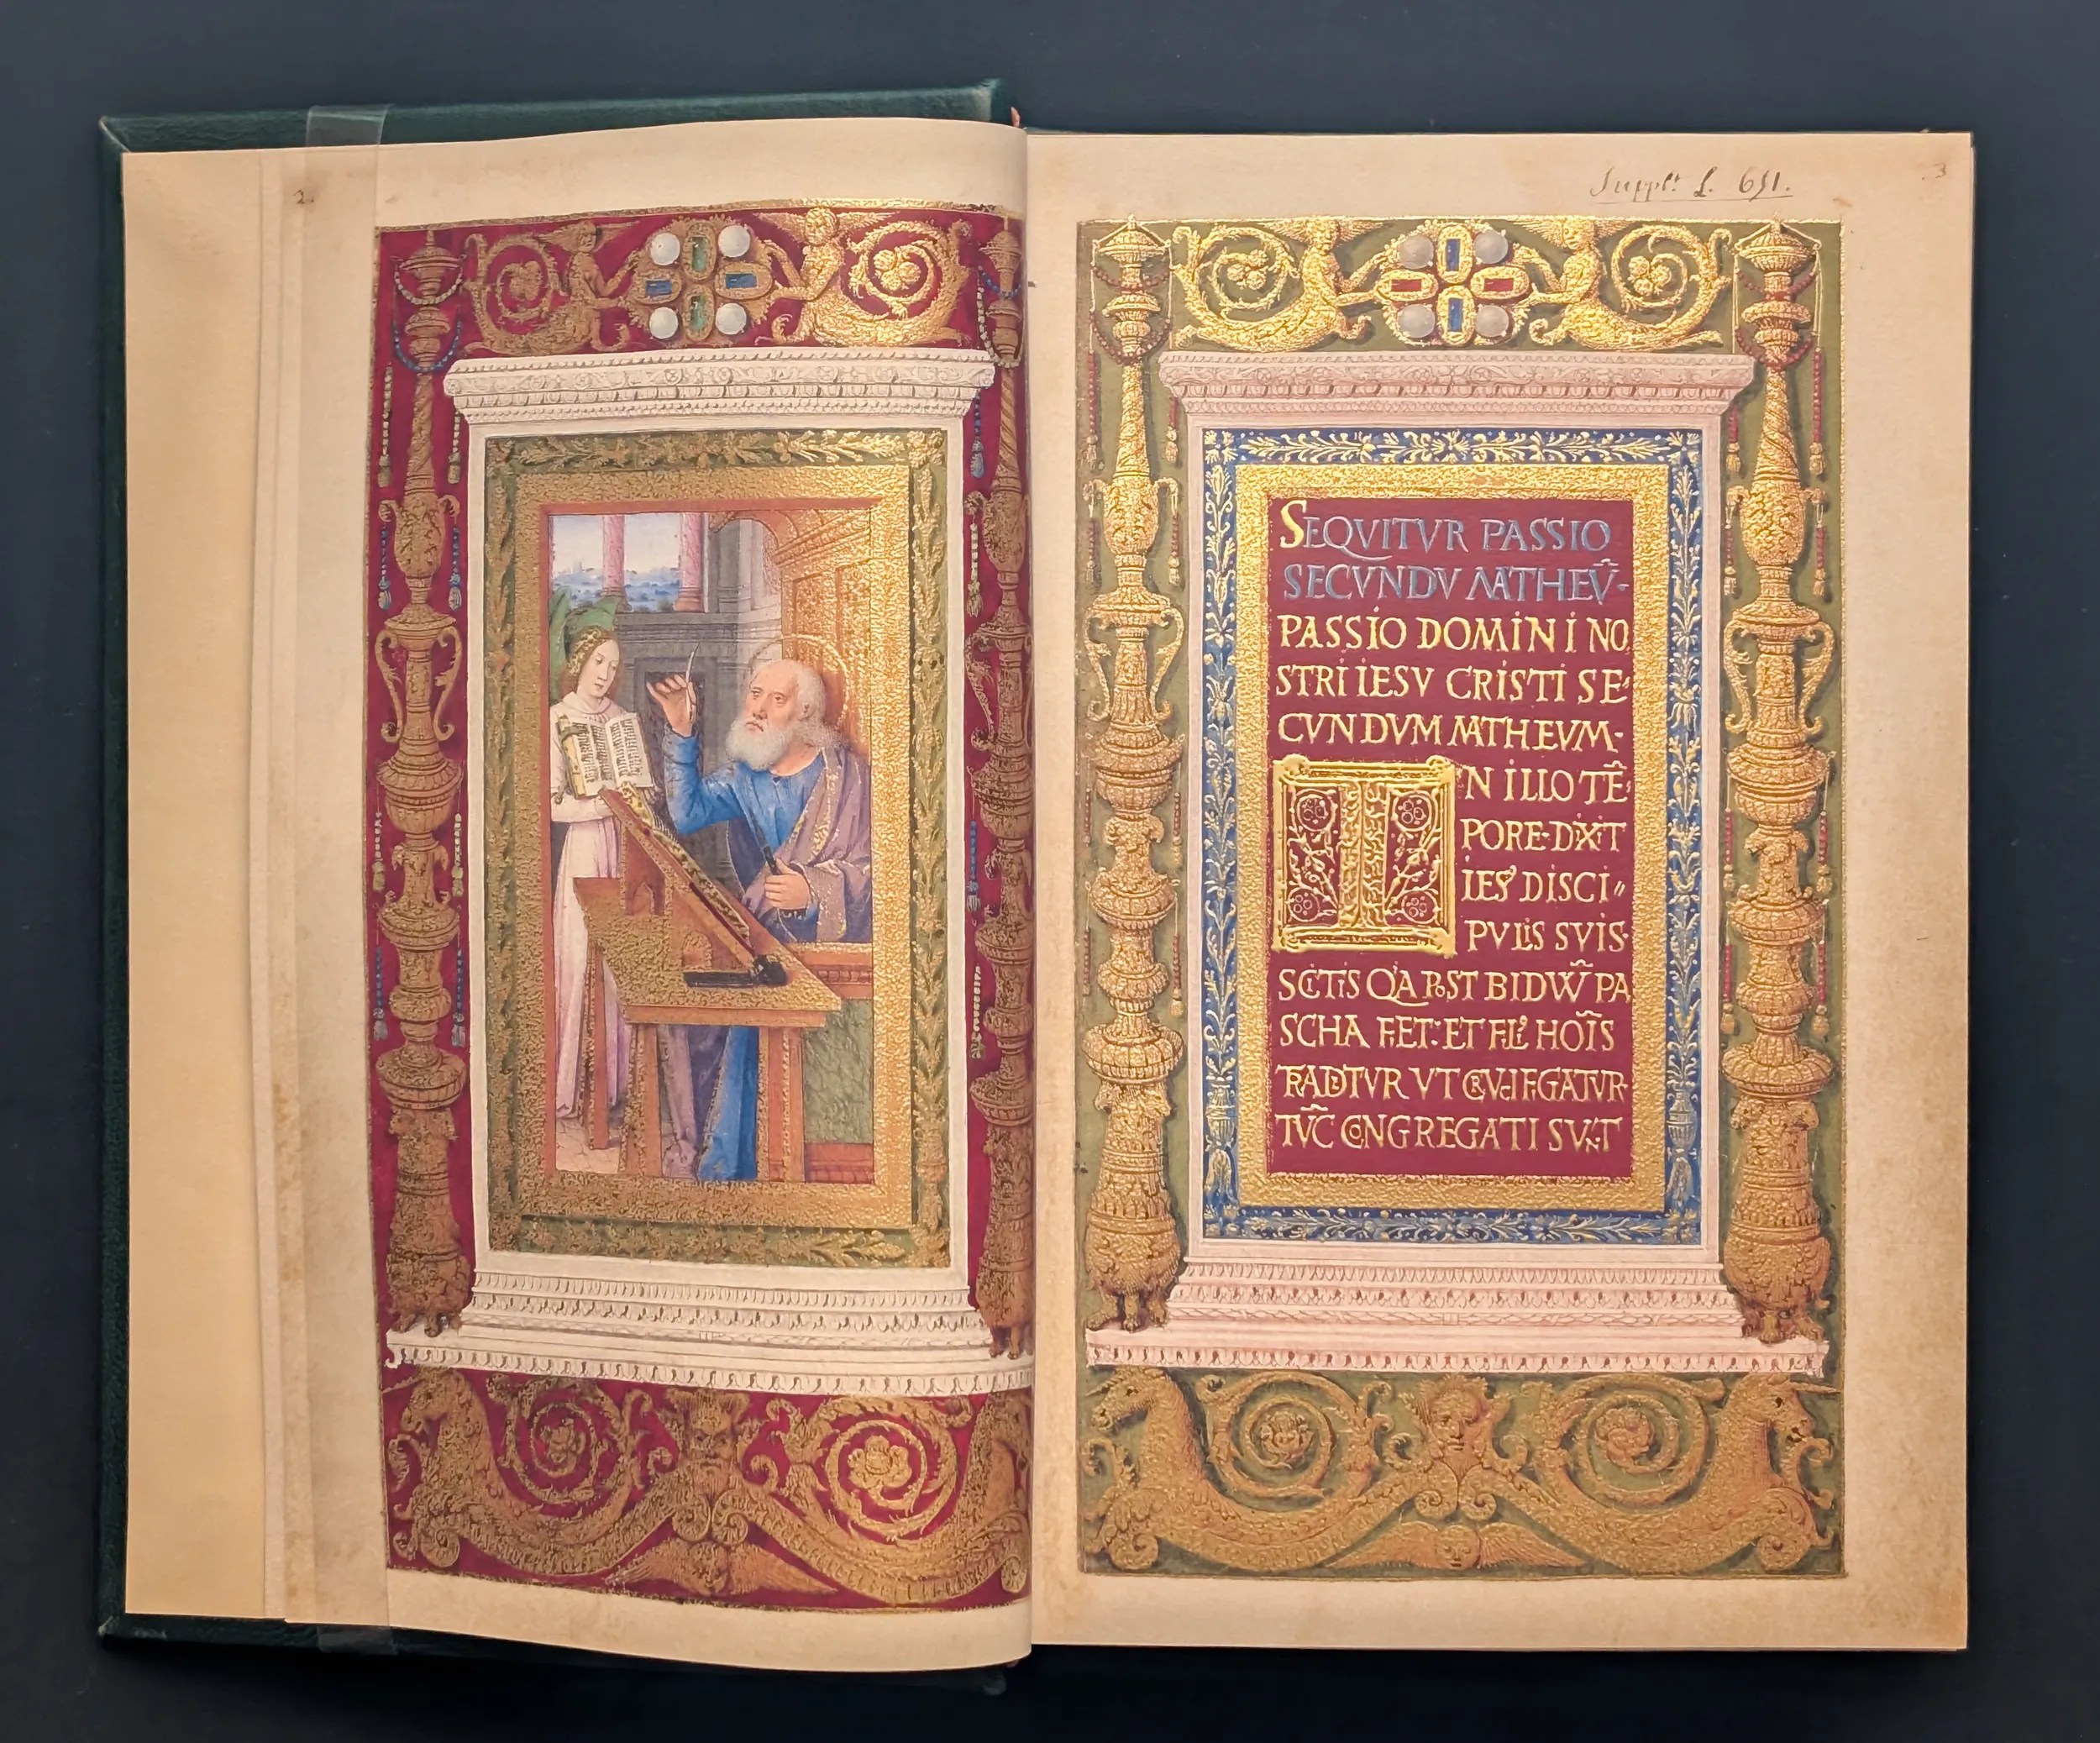 2.
Supplt. L. 651.
3
SEQVITVR PASSIO
SECVNDV MTHEV̄·
PASSIO DOMINI NO
STRI IESV CRISTI SE·
CVNDVM MTHEVM·
IN ILLO TĒ·
PORE·DIXIT
IES9 DISCI〃
PVLIS SVIS·
SCITIS QIA POST BIDVV̄ PA
SCHA FIET: ET FILI9 HOĪS
TRADITVR VT CRVCIFIGATVR·
TVC̄ CONGREGATI SVNT